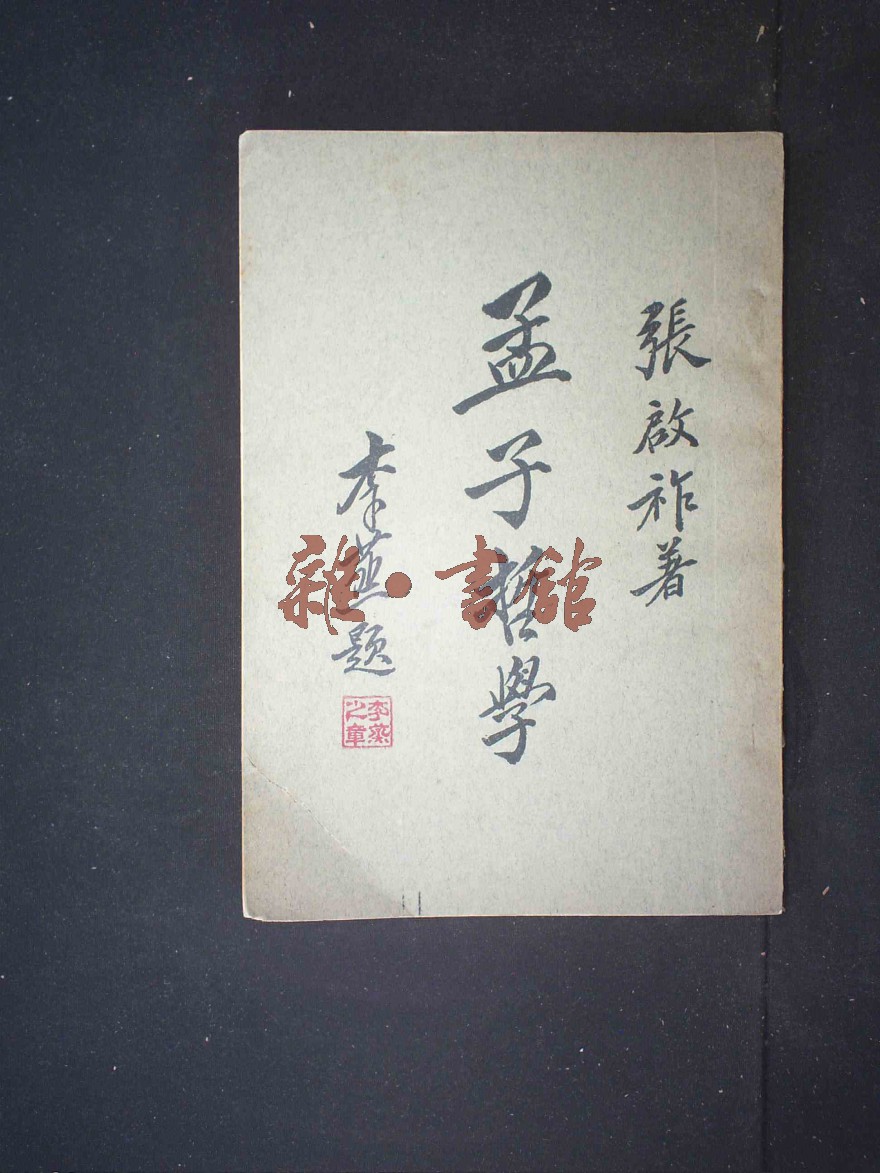 張啟祚著
孟子哲學
李蒸題
李蒸之章
雜·書館